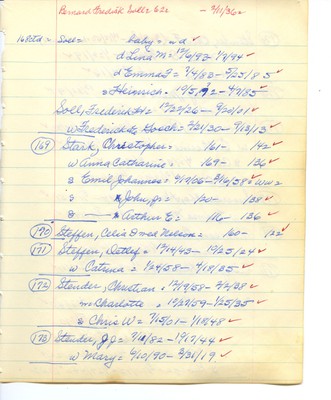 Bernard Fredrick Soll = 62 = - 9/11/36 =
168 Std = Soll = baby = - d ✓
d Lena M = 12/6/93 - 1/9/94 ✓
d Emma F = 7/4/83 - 5/25/85 ✓
s Heinrich = 10/5/ - 4/9/85 ✓
Soll, Frederick H = 12/22/26 - 9/20/01 ✓
w Frederick 2/21/30 - 9/13/13 ✓
169 Stark, Christopher = 161 - 142 ✓
w Anna Catharine = 169 - 126 ✓
s Emil Johannes = 9/17/06 - 2/16/58 ✓ WW =
s " John, Jr = 120 - 138 ✓
s " Arthur E = 116 - 136 ✓
170 Steffen, Celia D = od Nelson = 160 - 122 ✓
171 Steffen, Detlef = 12/14/43 - 12/25/24 ✓
w Catrina = 1/24/58 - 4/18/35 ✓
172 Stender, Christian = 12/19/58 - 2/2/28 ✓
Charlotte = 12/29/59 - 1/25/35 ✓
s Chris W = 7/15/01 - 1/18/48 ✓
173 Stender, J J = 9/10/82 - 1/17/44 ✓
w Mary = 6/10/90 - 3/31/19 ✓